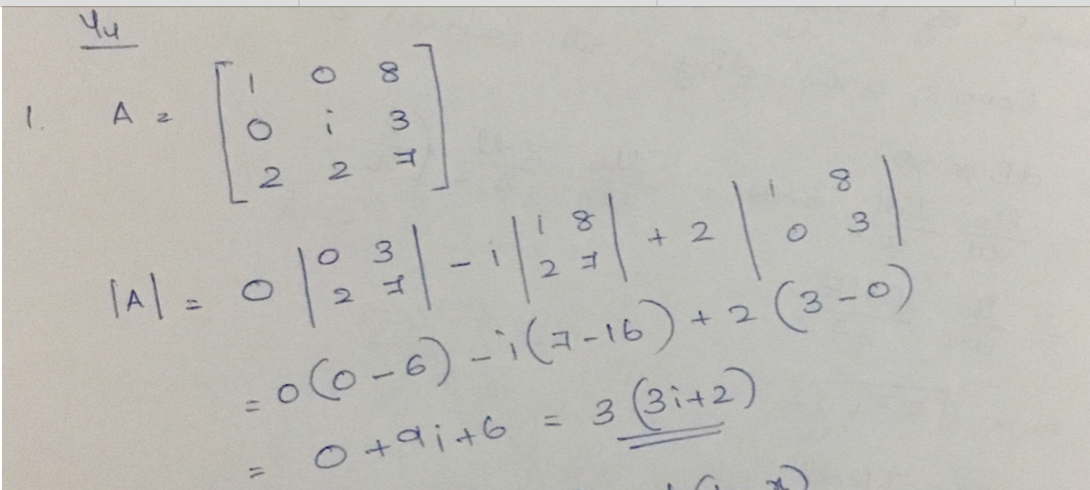 44
1. A = [ 1 0 8
0 i 3
2 2 7 ]
|A| = 0 | 0 3 2 7 | - i | 1 8 2 7 | + 2 | 1 8 0 3 |
= 0 (0 - 6) - i (7 - 16) + 2 (3 - 0)
= 0 + 9i + 6 = 3 (3i + 2)